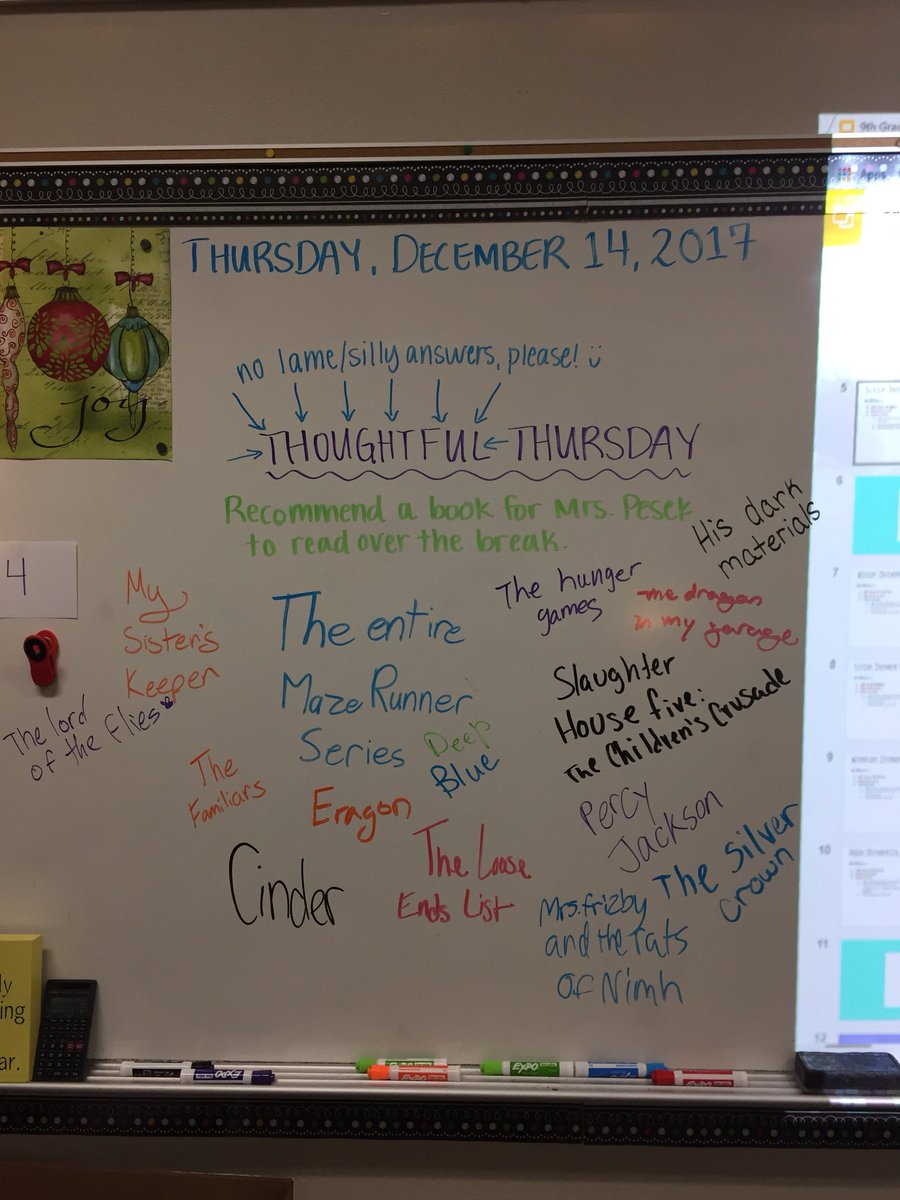 THURSDAY, DECEMBER 14, 2017
no lame/silly answers, please!
THOUGHTFUL THURSDAY
Recommend a book for Mrs. Pesek
to read over the break.
His dark
materials
The hunger
games
The dragon
in my garage
My
Sister's
Keeper
The entire
Maze Runner
Series
Slaughter
House five:
The Children's Crusade
The lord
of the flies
Deep
Blue
The
Familiars
Eragon
Percy
Jackson
Cinder
The Loose
Ends List
The Silver
Crown
Mrs. frizby
and the rats
of Nimh
joy
4
ly
ing
ar.
EXPO
EXPO
9th Gra
Apps
5
6
7
8
9
10
11
12